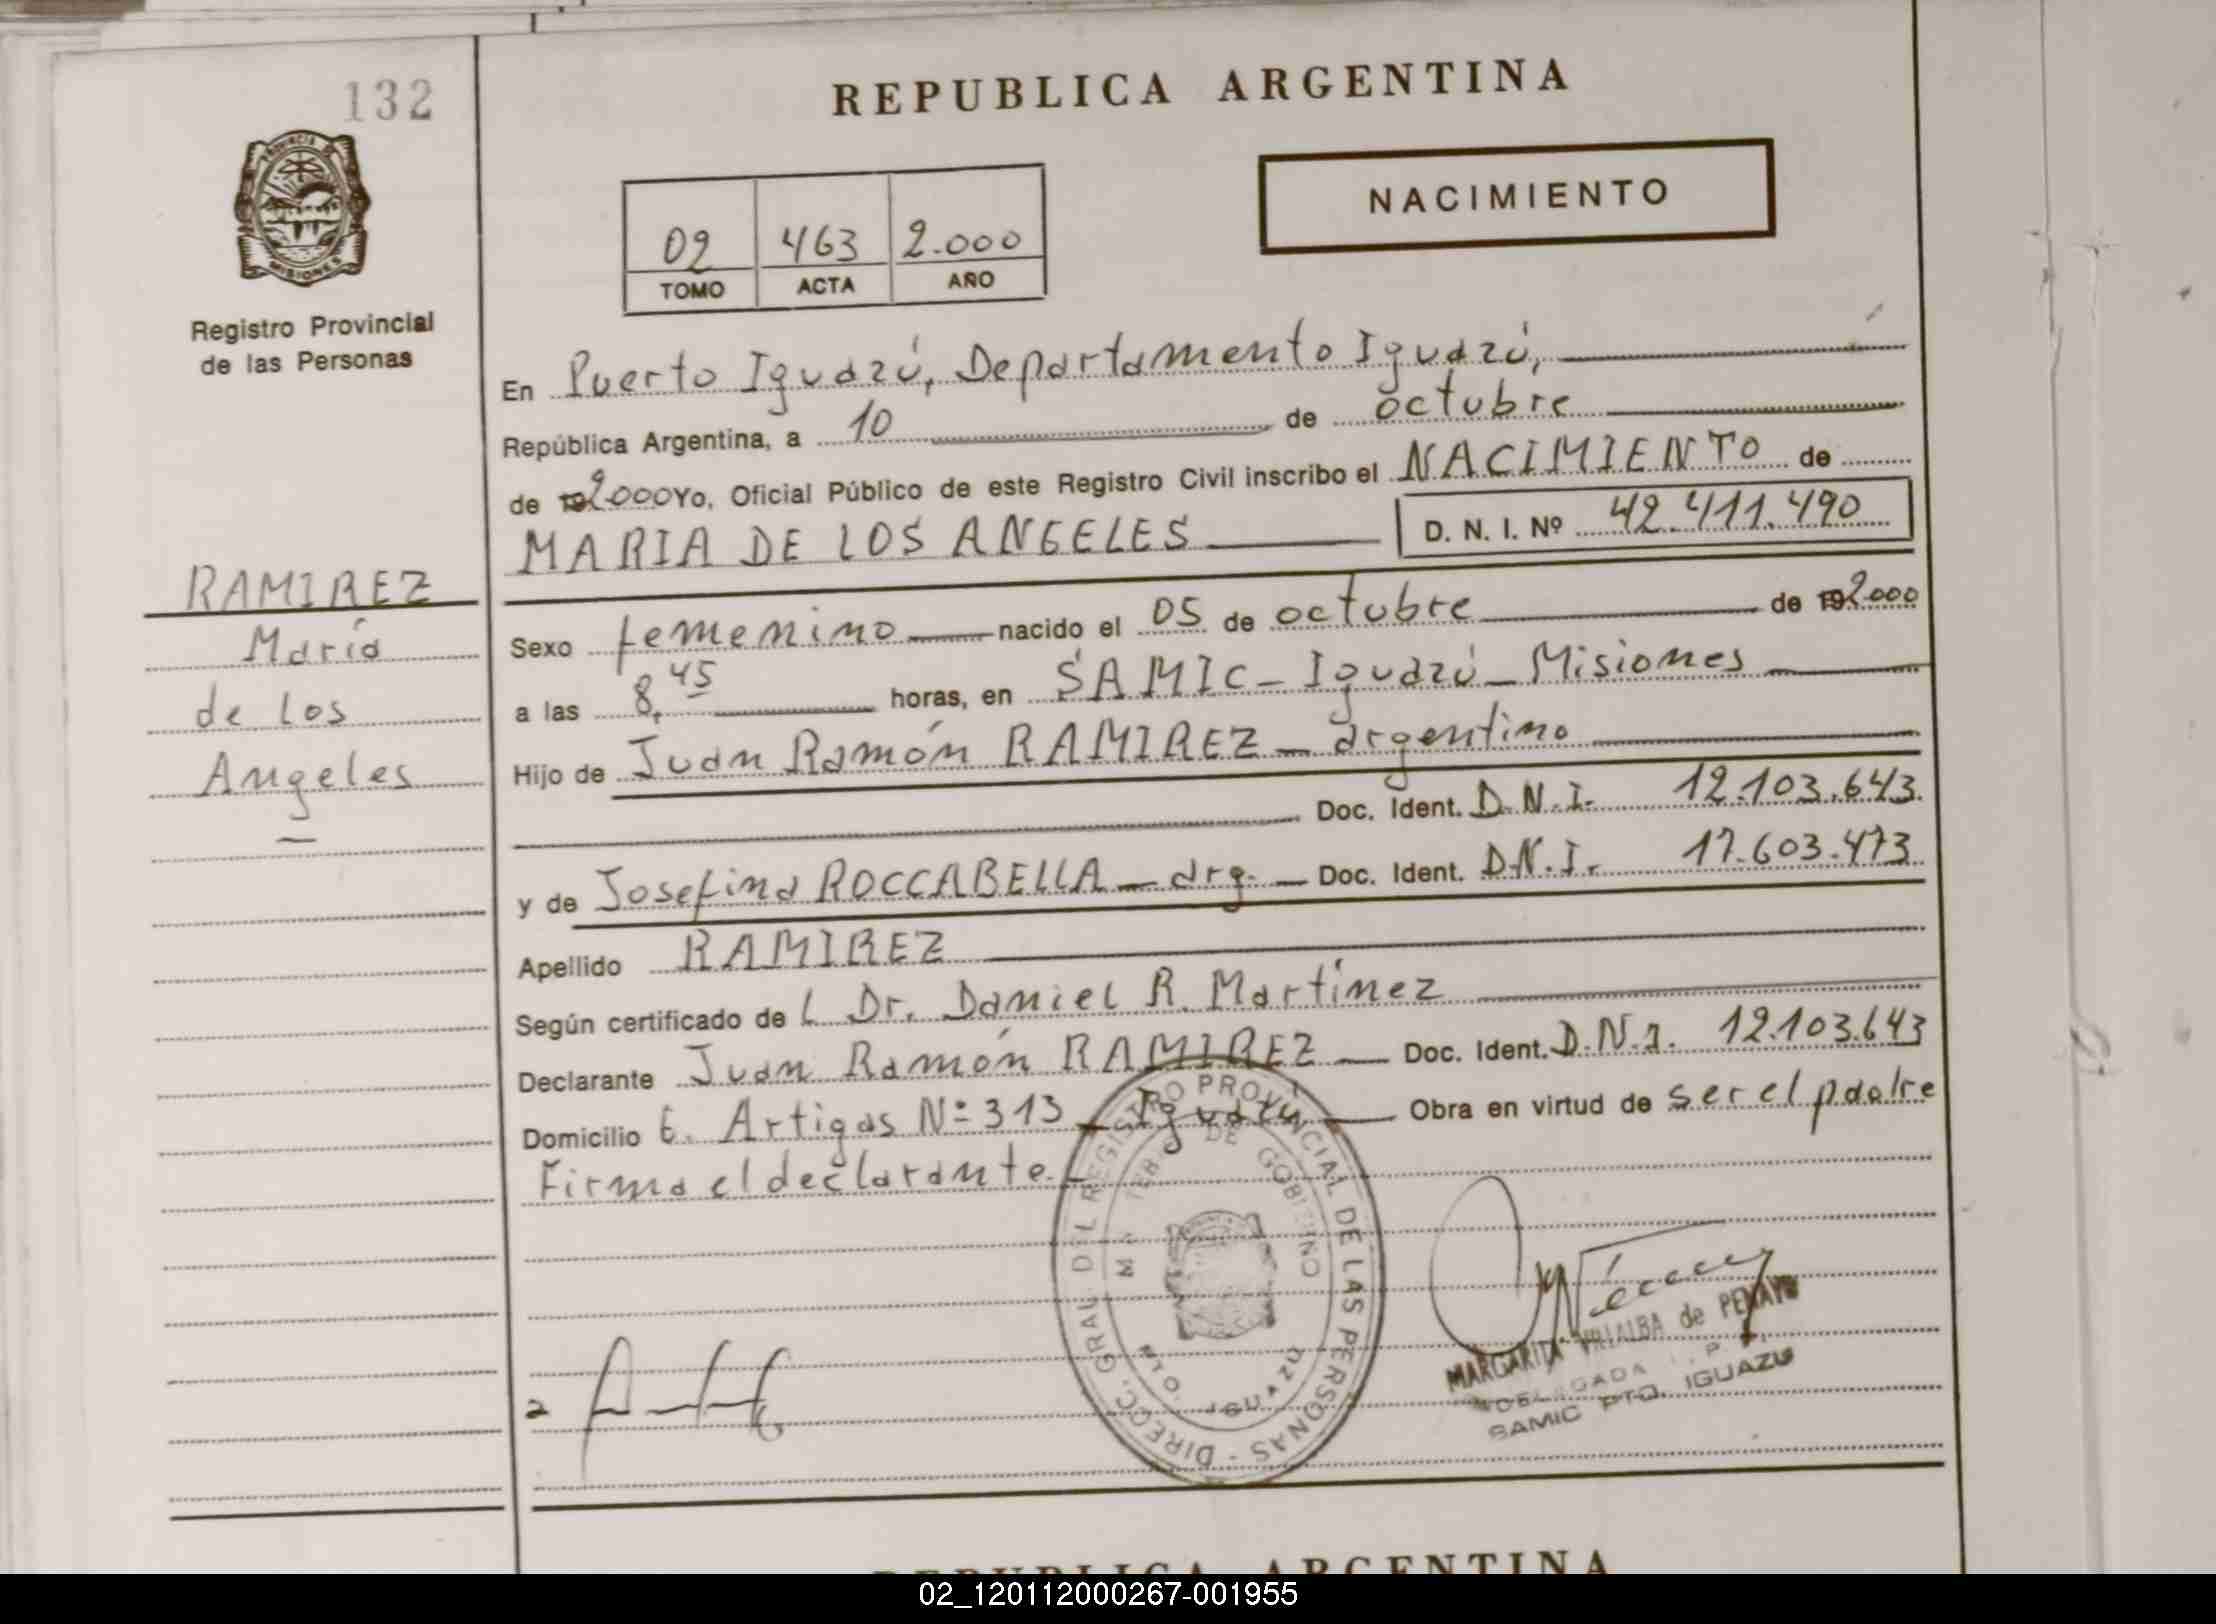 132
REPUBLICA ARGENTINA
PROVINCIA DE
MISIONES
Registro Provincial
de las Personas
NACIMIENTO
02 463 2.000
TOMO ACTA AÑO
En Puerto Iguazú, Departamento Iguazú,
República Argentina, a 10 de octubre
de 192000 Yo, Oficial Público de este Registro Civil inscribo el NACIMIENTO de
MARIA DE LOS ANGELES D. N. I. Nº 42.411.490
RAMIREZ
María
de los
Angeles
Sexo femenino nacido el 05 de octubre de 192000
a las 8,45 horas, en SAMIC - Iguazú - Misiones
Hijo de Juan Ramón RAMIREZ - argentino
Doc. Ident. D.N.I. 12.103.643
y de Josefina ROCCABELLA - arg. - Doc. Ident. D.N.I. 17.603.473
Apellido RAMIREZ
Según certificado de l Dr. Daniel R. Martínez
Declarante Juan Ramón RAMIREZ - Doc. Ident. D.N.I. 12.103.643
Domicilio G. Artigas Nº 313 - Iguazú - Obra en virtud de ser el padre
Firma el declarante.-
DIRECC. GRAL DEL REGISTRO PROVINCIAL DE LAS PERSONAS -
DE GOBIERNO
MARGARITA VILLALBA de PENAYO
DELEGADA
SAMIC PTO. IGUAZU
REPUBLICA ARGENTINA
02_120112000267-001955